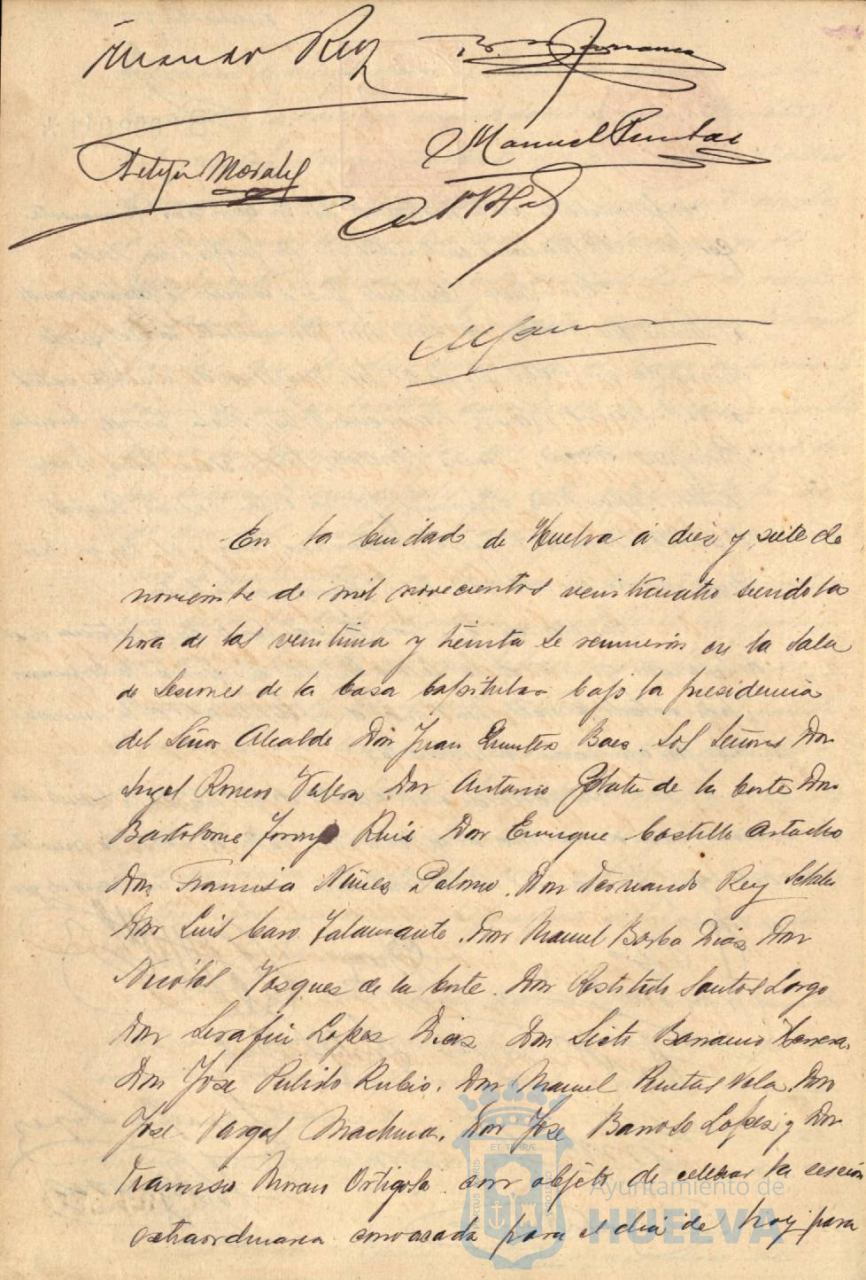 Fernando Rey
Manuel Puntas
Felipe Morales
En la Ciudad de Huelva á diez y siete de
noviembre de mil novecientos veinticuatro siendo la
hora de las veintiuna y treinta se reunieron en la sala
de Sesiones de la Casa Capitular bajo la presidencia
del Señor Alcalde Don Juan Quintero Baez. Los Señores Don
Angel Romero Valera Don Antonio de la Corte Don
Bartolome Ruiz Don Enrique Castillo Artacho
Don Francisco Núñez Palomo. Don Fernando Rey
Don Luis Caro Talamante. Don Manuel Barba Dias Don
Nicolas Vasques de la Corte. Don Restituto Santos Largo
Don Serafin Lopez Dias Don Sisto Borrero Herrera
Don Jose Pulido Rubio. Don Manuel Puntas Vela. Don
Jose Vargas Machuca. Don Jose Barroso Lopez y Don
Francisco Moreno Ortigosa con objeto de celebrar la sesión
extraordinaria convocada para el dia de hoy para
Ayuntamiento de
HUELVA